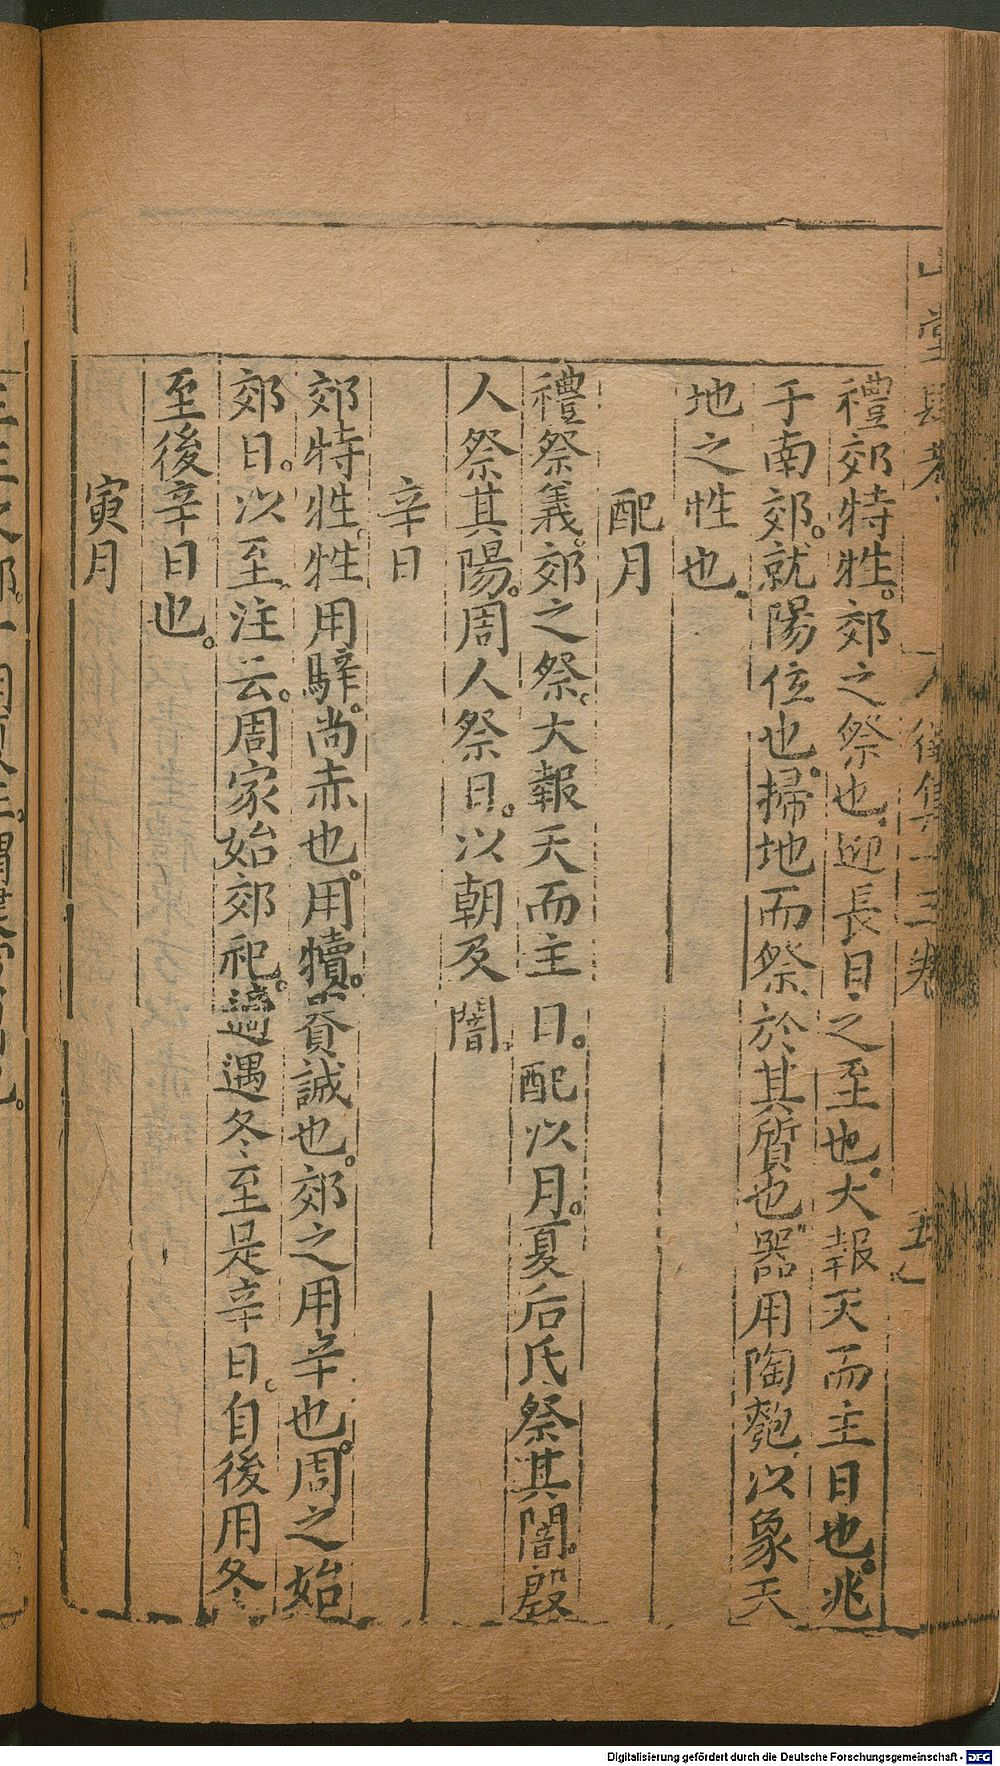 山堂肆考
徵集十三卷
禮郊特牲。郊之祭也迎長日之至也。大報天而主日也。兆
于南郊。就陽位也。掃地而祭於其質也器用陶匏以象天
地之性也
配月
禮祭義。郊之祭。大報天而主日。配以月。夏后氏祭其闇。殷
人祭其陽。周人祭日。以朝及闇
辛日
郊特牲。牲用騂。尚赤也。用犢。貴誠也。郊之用辛也。周之始
郊日。以至注云。周家始郊祀。適遇冬至是辛日。自後用冬
至後辛日也。
寅月
Digitalisierung gefördert durch die Deutsche Forschungsgemeinschaft - DFG